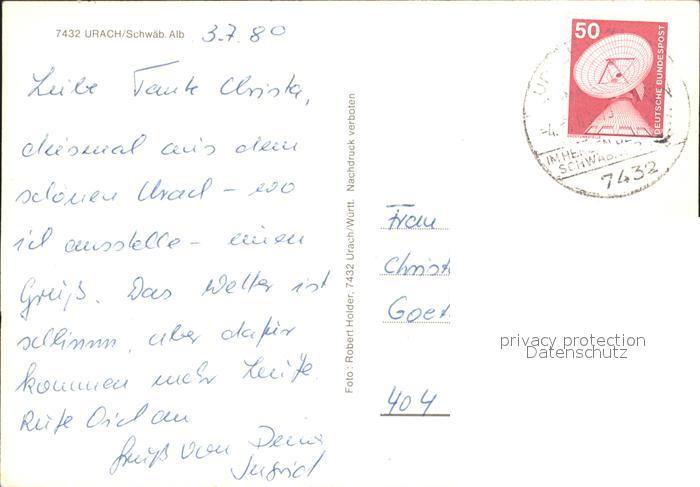 7432 URACH/Schwäb. Alb
3.7.80
Liebe Tante Christa,
diesmal aus dem
schönen Urach – wo
ich ausstelle – einen
Gruß. Das Wetter ist
schlimm, aber dafür
kommen mehr Leute.
Rufe Dich an
Gruß von Deine
Ingrid
Foto: Robert Holder, 7432 Urach/Württ. Nachdruck verboten
50
DEUTSCHE BUNDESPOST
IM HER
SCHWÄB
7432
Frau
Christ
Goet
404
privacy protection
Datenschutz